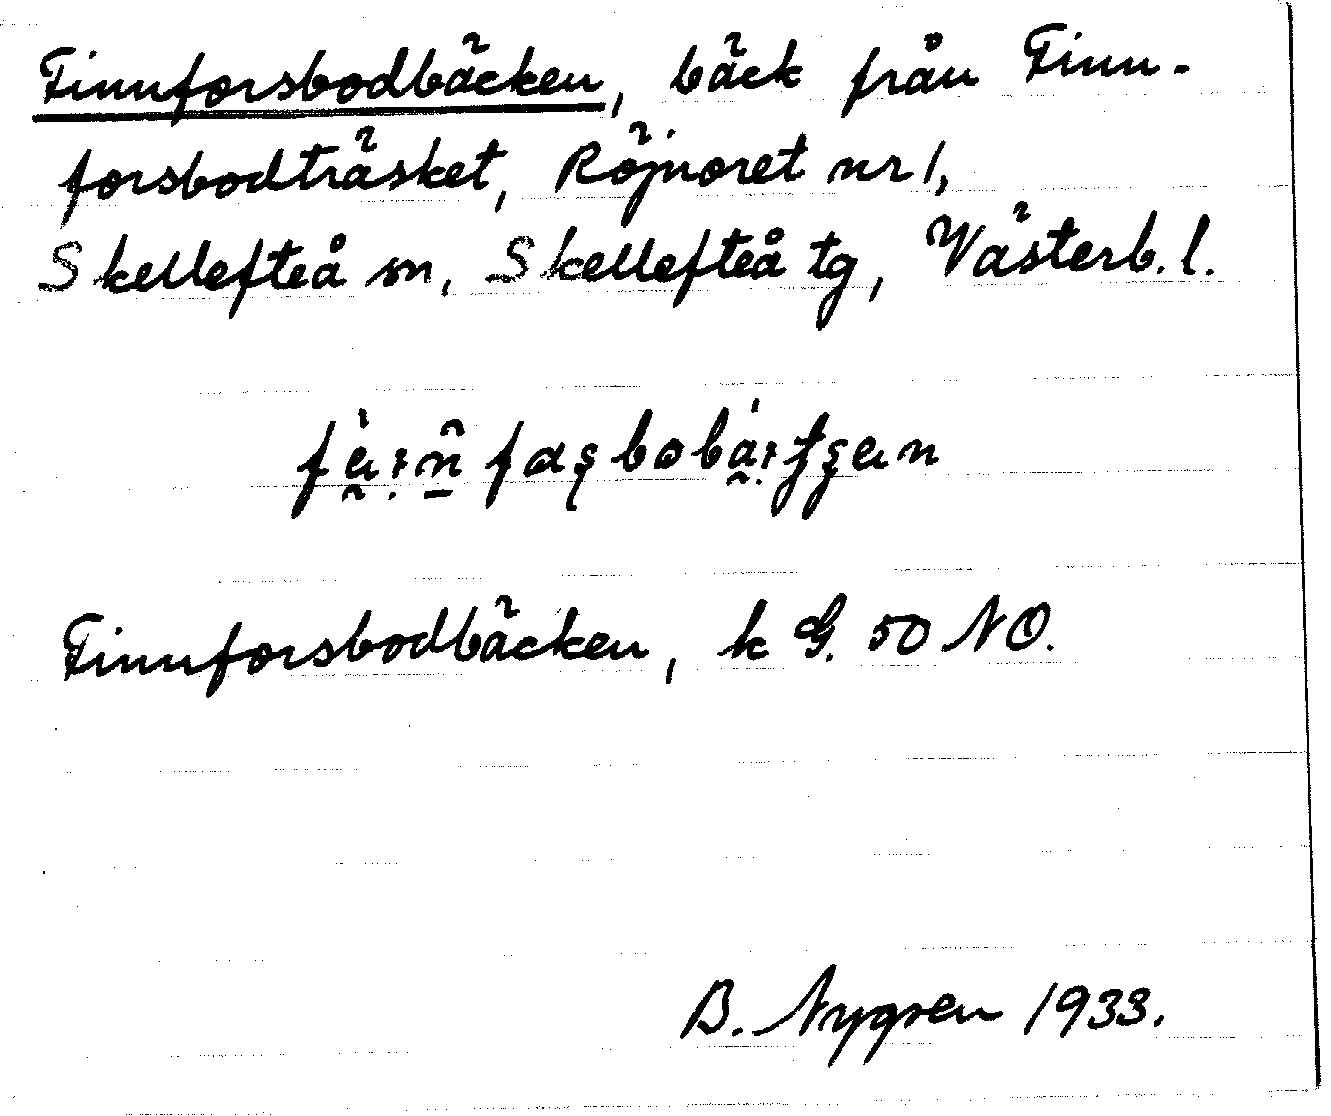 Finnforsbodbäcken, bäck från Finn-
forsbodträsket, Röjnoret nr 1,
Skellefteå sn, Skellefteå tg, Västerb. l.
Finnforsbodbäcken, k G. 50 NO.
B. Nygren 1933.